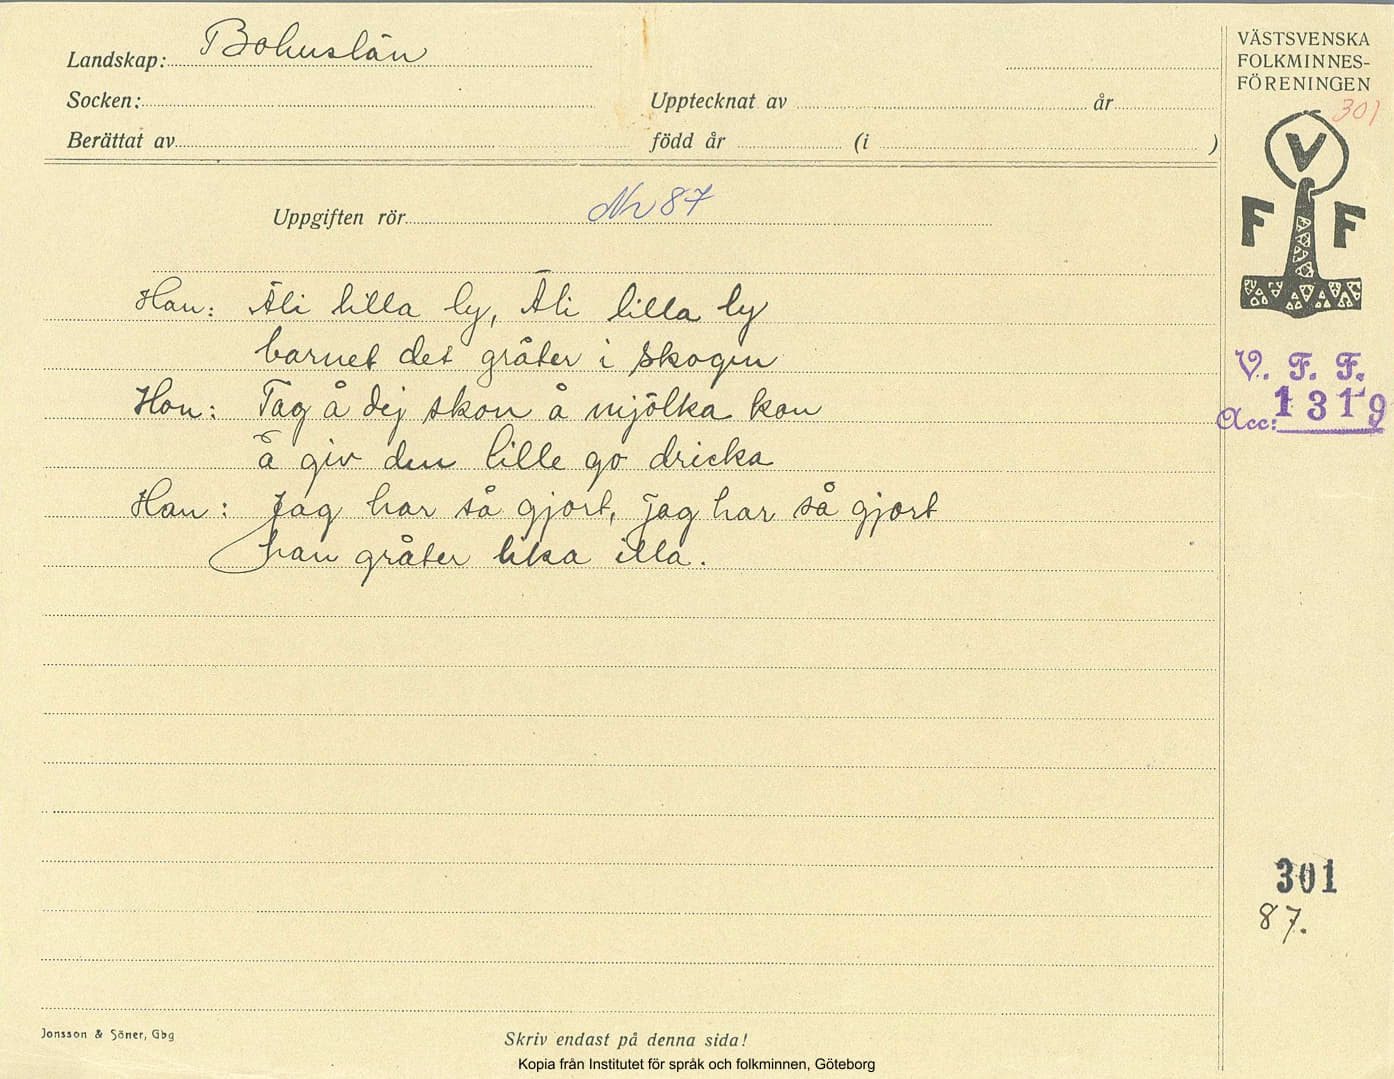 Landskap: Bohuslän
Socken:
Upptecknat av år
Berättat av
född år (i )
VÄSTSVENSKA
FOLKMINNES-
FÖRENINGEN
301
V
F F
V. F. F.
Acc: 1319
Uppgiften rör Nr 87
Han: Äli lilla ly, Äli lilla ly
barnet det gråter i skogen
Hon: Tag å dej skon å mjölka kon
å giv den lille go dricka
Han: Jag har så gjort, jag har så gjort
han gråter lika illa.
301
87.
Jonsson & Söner, Gbg
Skriv endast på denna sida!
Kopia från Institutet för språk och folkminnen, Göteborg